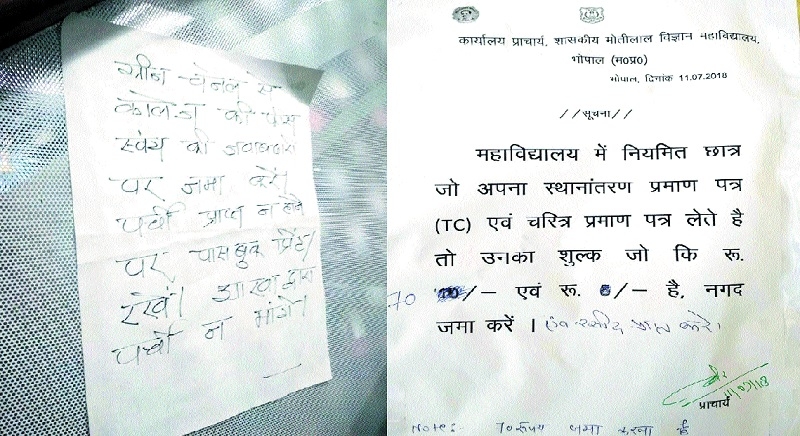 ग्रीन चेनल से
कालेज की फीस
स्वंय की जवाबदारी
पर जमा करें।
पर्ची प्राप्त न होने
पर पासबुक प्रिंट
रखें। शाखा द्वारा
पर्ची न मांगे।
कार्यालय प्राचार्य, शासकीय मोतीलाल विज्ञान महाविद्यालय,
भोपाल (म०प्र०)
भोपाल, दिनांक 11.07.2018
//सूचना//
महाविद्यालय में नियमित छात्र
जो अपना स्थानांतरण प्रमाण पत्र
(TC) एवं चरित्र प्रमाण पत्र लेते है
तो उनका शुल्क जो कि रू.
70 /– एवं रू. /– है, नगद
जमा करें । एवं रसीद प्राप्त करे।
प्राचार्य
Note:- 70 रुपय जमा करना है